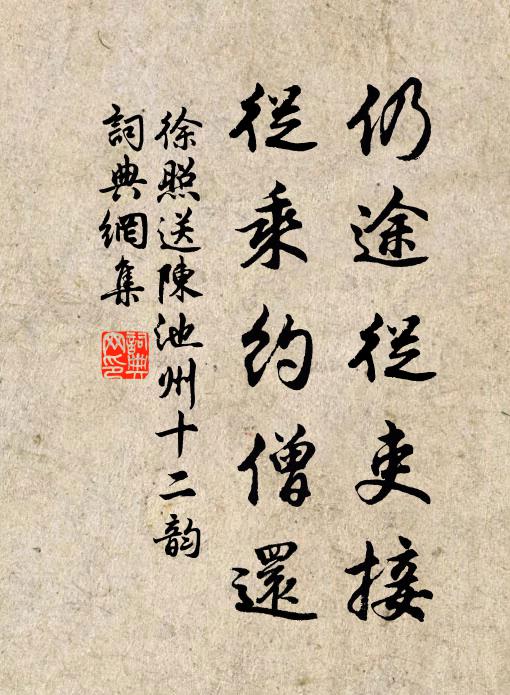 仍途從吏接
從乘約僧還
徐照送陳池州十二韵
詞典網集
詞典網印